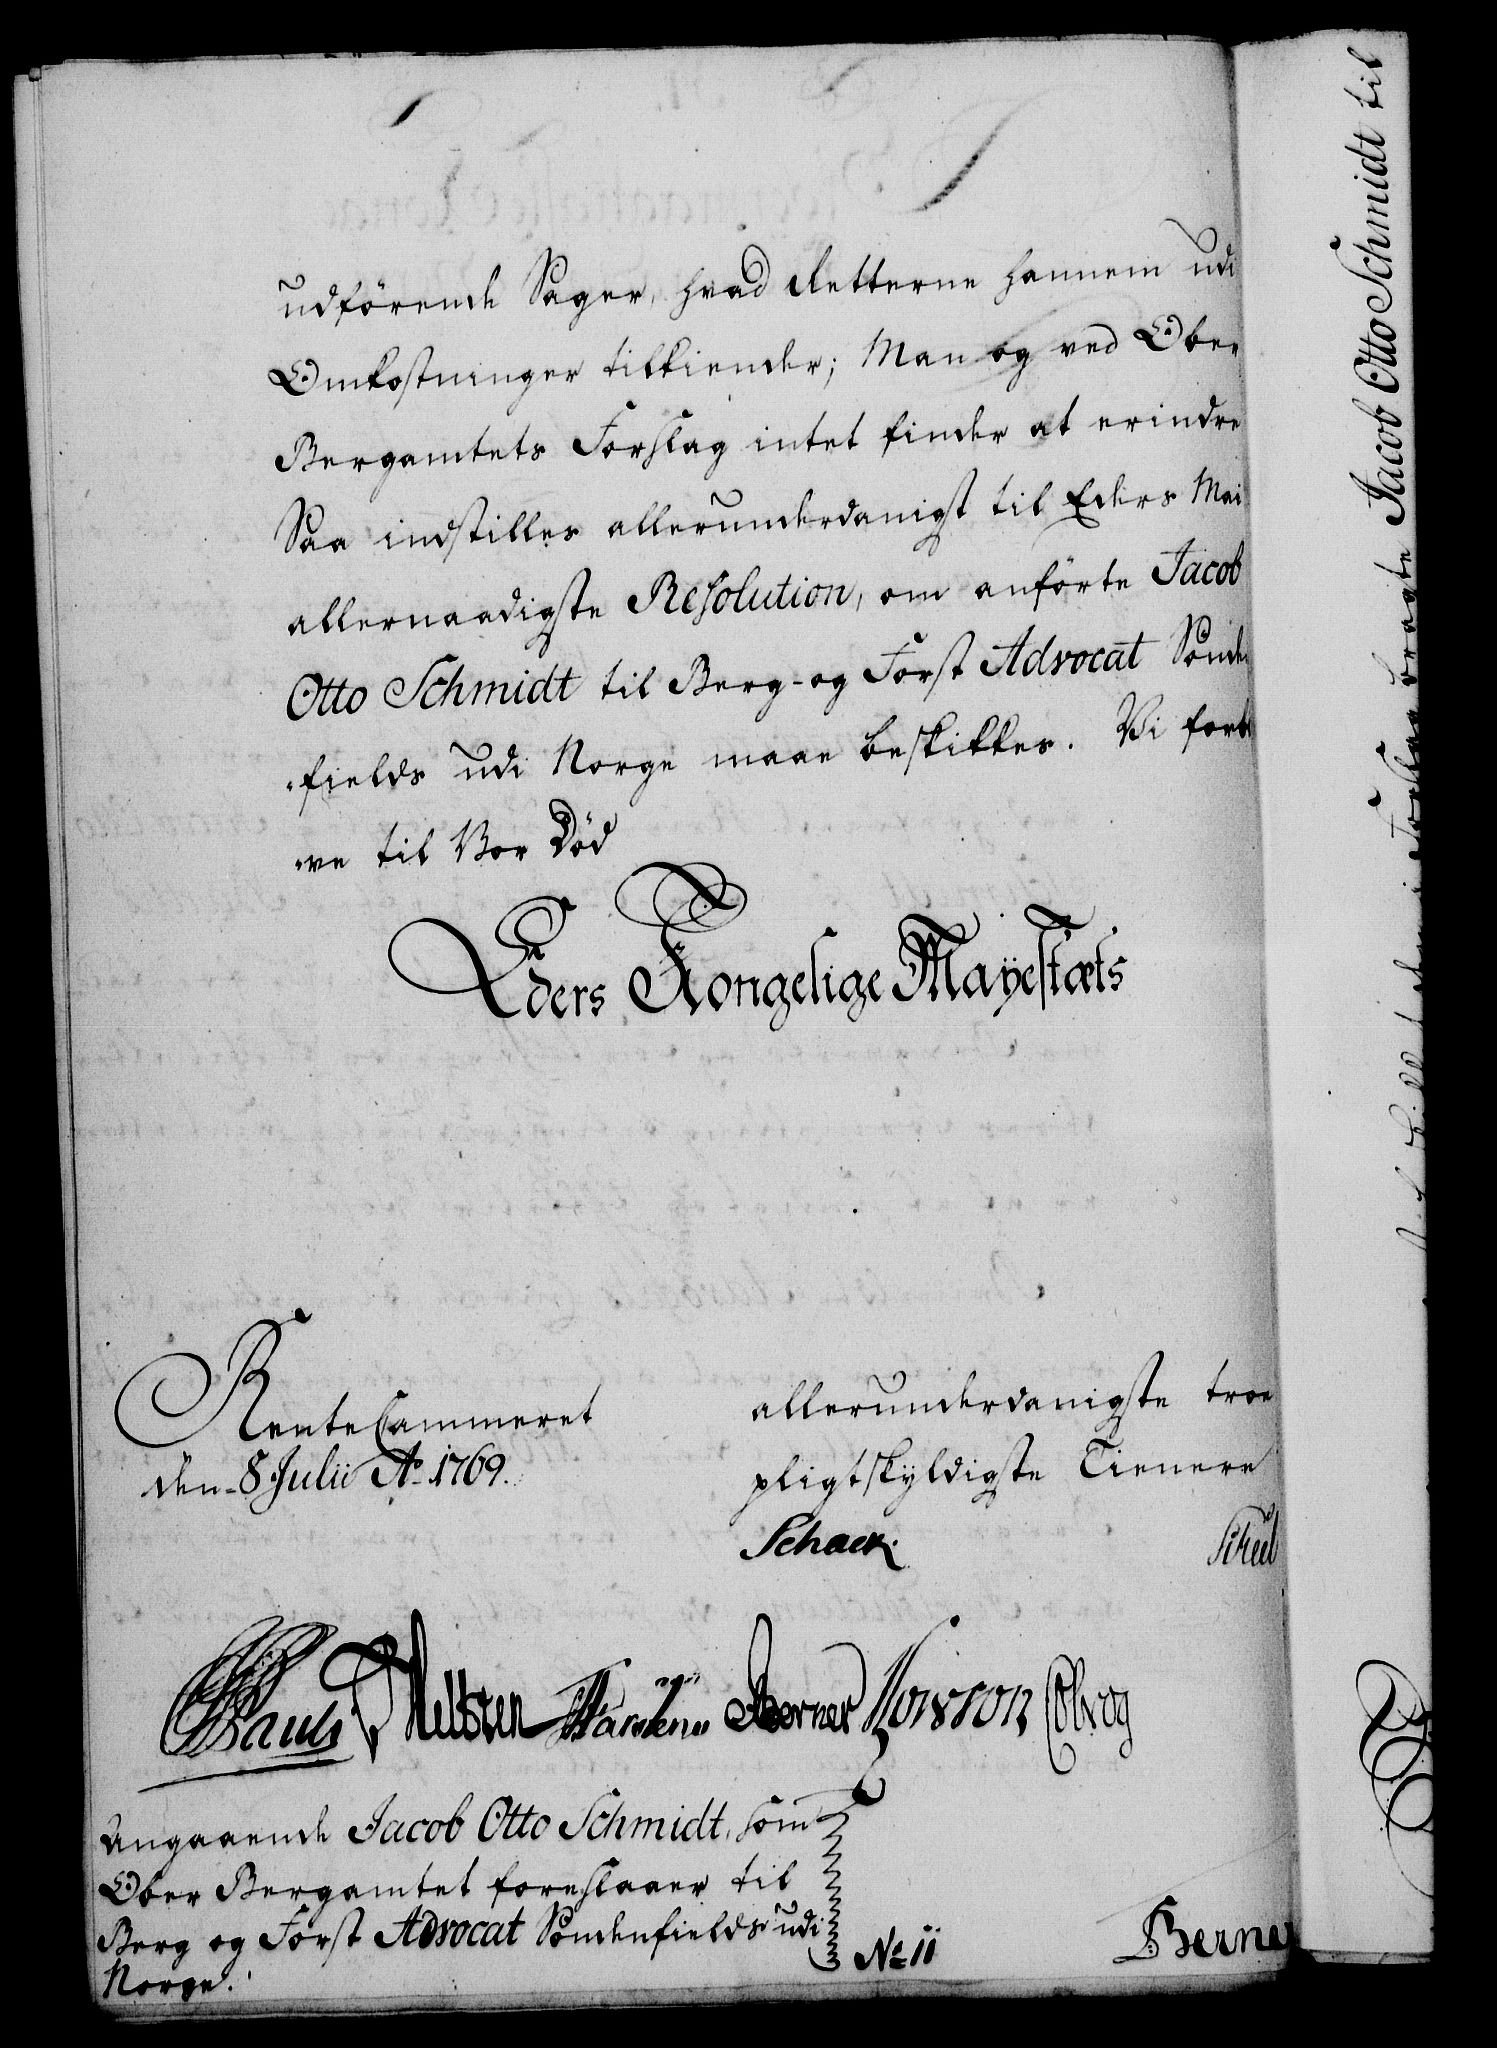 udförende Sager, hvad Retterne hannem udi
Omkostninger tilkiender; Man og ved Ober
Bergamtets Forslag intet finder at erindre
Saa indstilles allerunderdanigst til Eders Mai
allernaadigste Resolution, om anförte Jacob
Otto Schmidt til Berg- og Forst Advocat Sönden
fields udi Norge maae beskikkes. Vi forbl
ve til Vor Död
Eders Kongelige Mayestæts
RenteCammeret
den 8 Julii Ao 1769.
allerunderdanigste troe
pligtskyldigste Tienere
Schack.
Pauli Berner Cobrog
Angaaende Jacob Otto Schmidt, som
Ober Bergamtet foreslaaer til
Berg og Forst Advocat Söndenfields udi
Norge.
No 11
Berner
bragte Jacob Otto Schmidt til